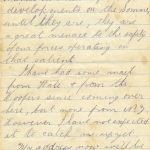 developments on the Somme
until they are, they are
a great menace to the safety
of our forces operating in
that salient.
I have had some mail
from Kate & from the
Coopers send coming over
her, but none from
However I have not expected
it to catch me up yet
My address now will be